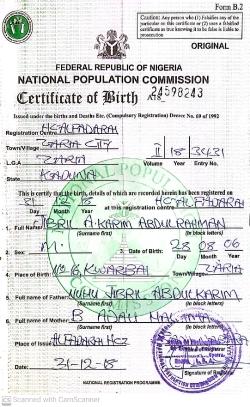 Form B.2
Caution: Any person who (1) Falsifies any of the particular on this certificate or (2) uses a falsified certificate as true knowing it to be false is liable to prosecution
ORIGINAL
FEDERAL REPUBLIC OF NIGERIA
NATIONAL POPULATION COMMISSION
Certificate of Birth
24598243
Issued under the Births and Deaths Etc. (Compulsory Registration) Decree No. 69 of 1992
Registration Centre
Town/Village ZARIA CITY
L.G.A ZARIA
Volume Year Entry No.
State KADUNA
This is certify that the birth, details of which are recorded herein has been registered on
21 12 18
Day Month Year at this registration centre
1. Full Name: JIBRIL A. KARIM ABDULRAHMAN
(Surname first) (in block letters)
2. Sex: M 3. Date of Birth: 28 08 06
Day Month Year
4. Place of Birth KWARBAI Town/Village ZARIA
5. Full name of Father: NUHU JIBRIL ABDULKARIM
(Surname first) (in block letters)
6. Full name of Mother: B
(Surname first) (in block letters)
Place of Issue
21-12-18
Date
NATIONAL REGISTRATION PROGRAMME
Scanned with CamScanner